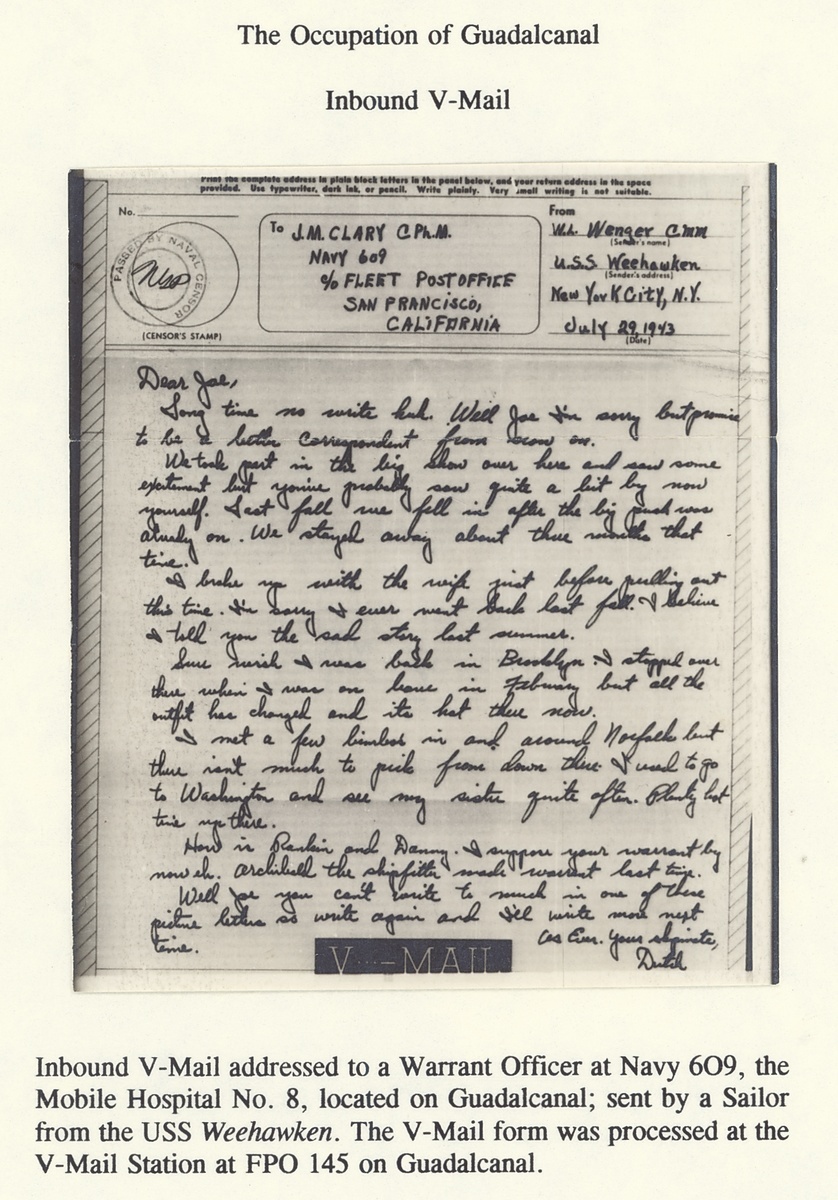 The Occupation of Guadalcanal
Inbound V-Mail
Print the complete address in plain block letters in the panel below, and your return address in the space
provided. Use typewriter, dark ink, or pencil. Write plainly. Very small writing is not suitable.
No.
PASSED BY NAVAL CENSOR
(CENSOR'S STAMP)
To J.M. CLARY C.Ph.M.
NAVY 609
c/o FLEET POSTOFFICE
SAN FRANCISCO,
CALIFORNIA
From
W.L. Wenger CMM
(Sender's name)
U.S.S Weehawken
(Sender's address)
New York City, N.Y.
July 29, 1943
(Date)
Dear Joe,
Long time no write huh. Well Joe I'm sorry but promise
to be a better correspondent from now on.
We took part in the big show over here and saw some
excitement but you've probably saw quite a bit by now
yourself. Last fall we fell in after the big push was
already on. We stayed away about three months that
time.
I broke up with the wife just before pulling out
this time. I'm sorry I ever went back last fall. I believe
I told you the sad story last summer.
Sure wish I was back in Brooklyn. I stopped over
there when I was on leave in February but all the
outfit has changed and its hot there now.
I met a few bimbos in and around Norfolk but
there isn't much to pick from down there. I used to go
to Washington and see my sister quite often. Plenty hot
time up there.
How is Rankin and Danny. I suppose your warrant by
now eh. Archibald the shipfitter made warrant last trip.
Well Joe you can't write to much in one of these
picture letters so write again and I'll write more next
time.
As Ever. Your shipmate,
Dutch
V···–MAIL
Inbound V-Mail addressed to a Warrant Officer at Navy 6O9, the
Mobile Hospital No. 8, located on Guadalcanal; sent by a Sailor
from the USS Weehawken. The V-Mail form was processed at the
V-Mail Station at FPO 145 on Guadalcanal.